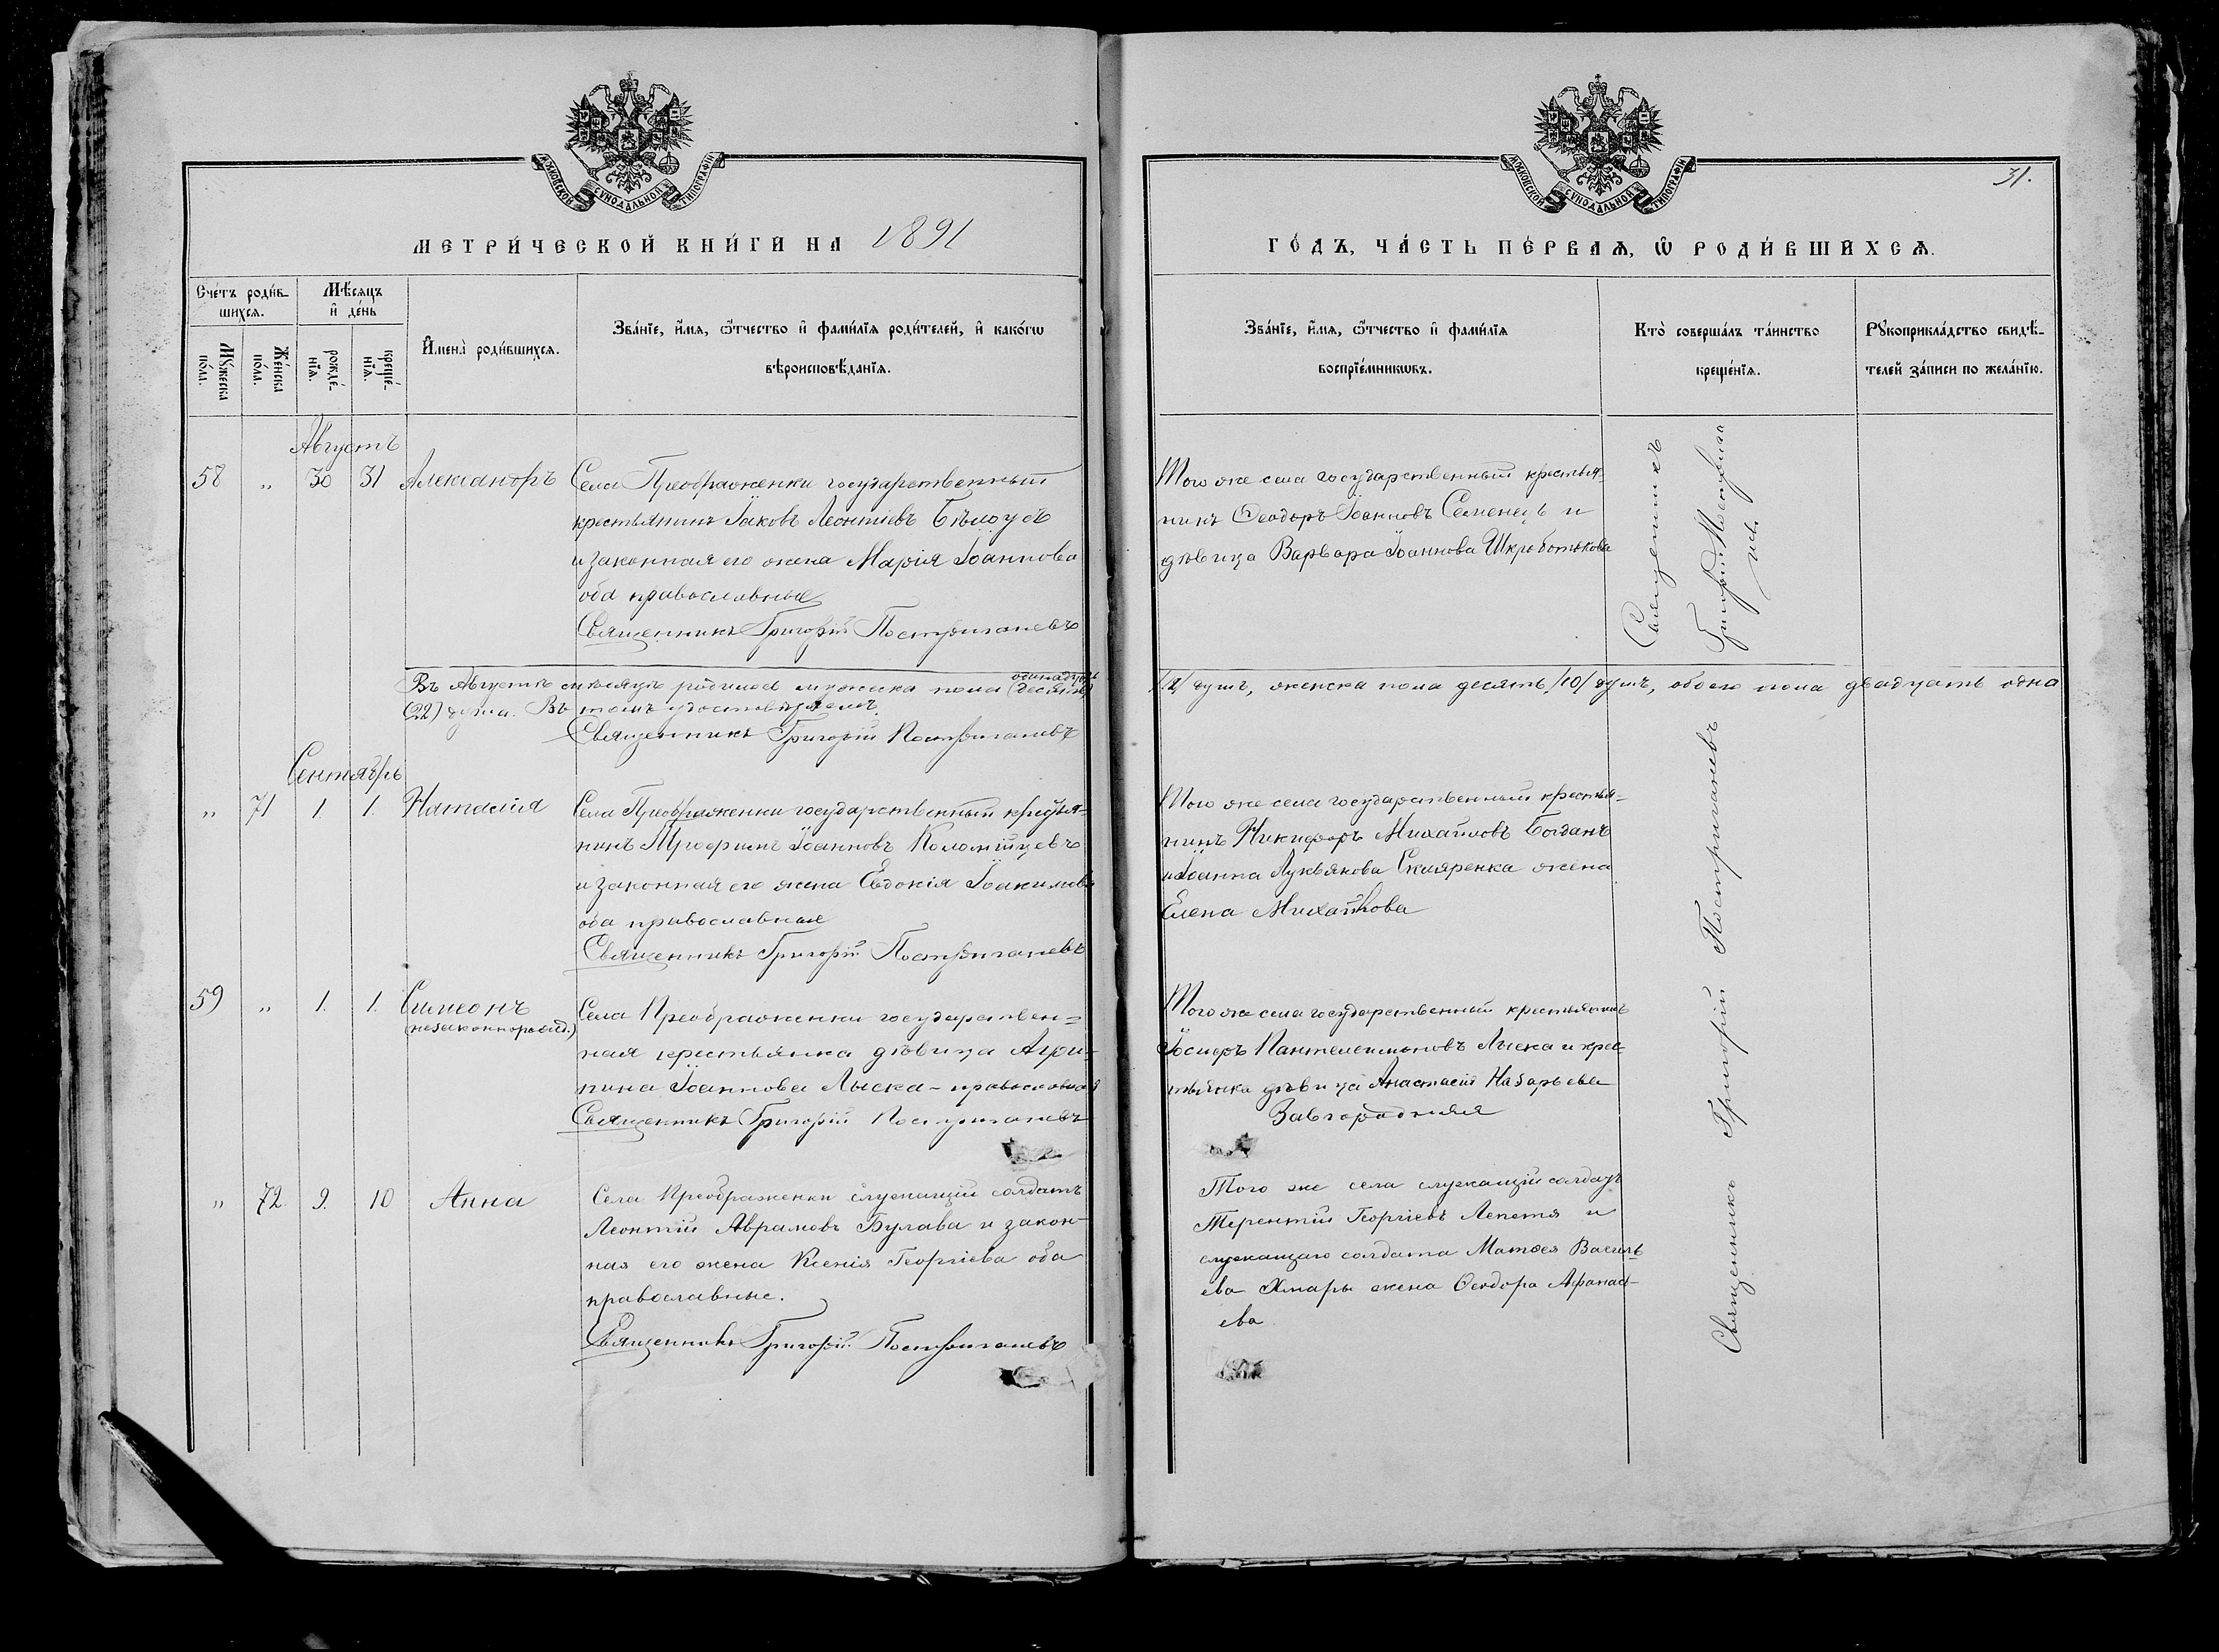 МОСКОВСКОЙ СѴНОДАЛЬНОЙ ТИПОГРАФІИ
МЕТРИ́ЧЕСКОЙ КНИ́ГИ НА 1891
Сче́тъ роди́в-
шихсѧ.
Мѣ́сѧцъ
и҆ де́нь
Мꙋ́жеска
по́ла.
Же́нска
по́ла.
рожде́-
нїѧ.
креще́-
нїѧ.
И҆мена̀ роди́вшихсѧ.
Зва́нїе, и҆́мѧ, ѻ҆́тчество и҆ фами́лїѧ роди́телей, и҆ како́гѡ
вѣроисповѣ́данїѧ.
Августъ
58 " 30 31 Александръ
Села Преображенки государственный
крестьянинъ Іаковъ Леонтіевъ Бѣлоусъ
и законная его жена Марія Іоаннова
оба православные
Священникъ Григорій Постригачевъ
Въ Августѣ мѣсяцѣ родилось мужеска пола
(22) душа. Въ томъ удостовѣряемъ.
Священникъ Григорій Постригачевъ
Сентябрь
" 71 1. 1. Наталія
Села Преображенки государственный крестья-
нинъ Трофимъ Іоанновъ Коломійцевъ
и законная его жена Евдокія Іоакимова
оба православные
Священникъ Григорій Постригачевъ
59 " 1. 1. Симеонъ
(незаконнорожд.)
Села Преображенки государствен-
ная крестьянка дѣвица Агри-
пина Іоаннова Лыска - православная
Священникъ Григорій Постригачевъ
" 72. 9. 10 Анна
Села Преображенки служащій солдатъ
Леонтій Аврамовъ Булава и закон-
ная его жена Ксенія Георгіева оба
православные.
Священникъ Григорій Постригачевъ
МОСКОВСКОЙ СѴНОДАЛЬНОЙ ТИПОГРАФІИ
31.
ГО́ДЪ, ЧА́СТЬ ПЕ́РВАѦ, Ѡ҆ РОДИ́ВШИХСѦ.
Зва́нїе, и҆́мѧ, ѻ҆́тчество и҆ фами́лїѧ
воспрїе́мникѡвъ.
Кто̀ соверша́лъ та́инство
креще́нїѧ.
Рꙋкоприкла́дство свидѣ́-
телей за́писи по жела́нїю.
Того же села государственный крестья-
нинъ Ѳеодоръ Іоанновъ Семенецъ и
дѣвица Варвара Іоаннова Шкроботькова
Священникъ
Григорій Постригаче-
въ.
душъ, женска пола десять /10/ душъ, обоего пола двадцать одна
Того же села государственный крестья-
нинъ Никифоръ Михайловъ Богданъ
и Іоанна Лукьянова Скляренка жена
Елена Михайлова
Того же села государственный крестьянинъ
Іосифъ Пантелеимоновъ Лыска и крес-
тьянка дѣвица Анастасія Назарьева
Завгородняя
Того же села служащій солдатъ
Терентій Георгіевъ Лепетя и
служащаго солдата Матѳея Василь-
ева Хмары жена Ѳеодора Афанась-
ева
Священникъ Григорій Постригачевъ